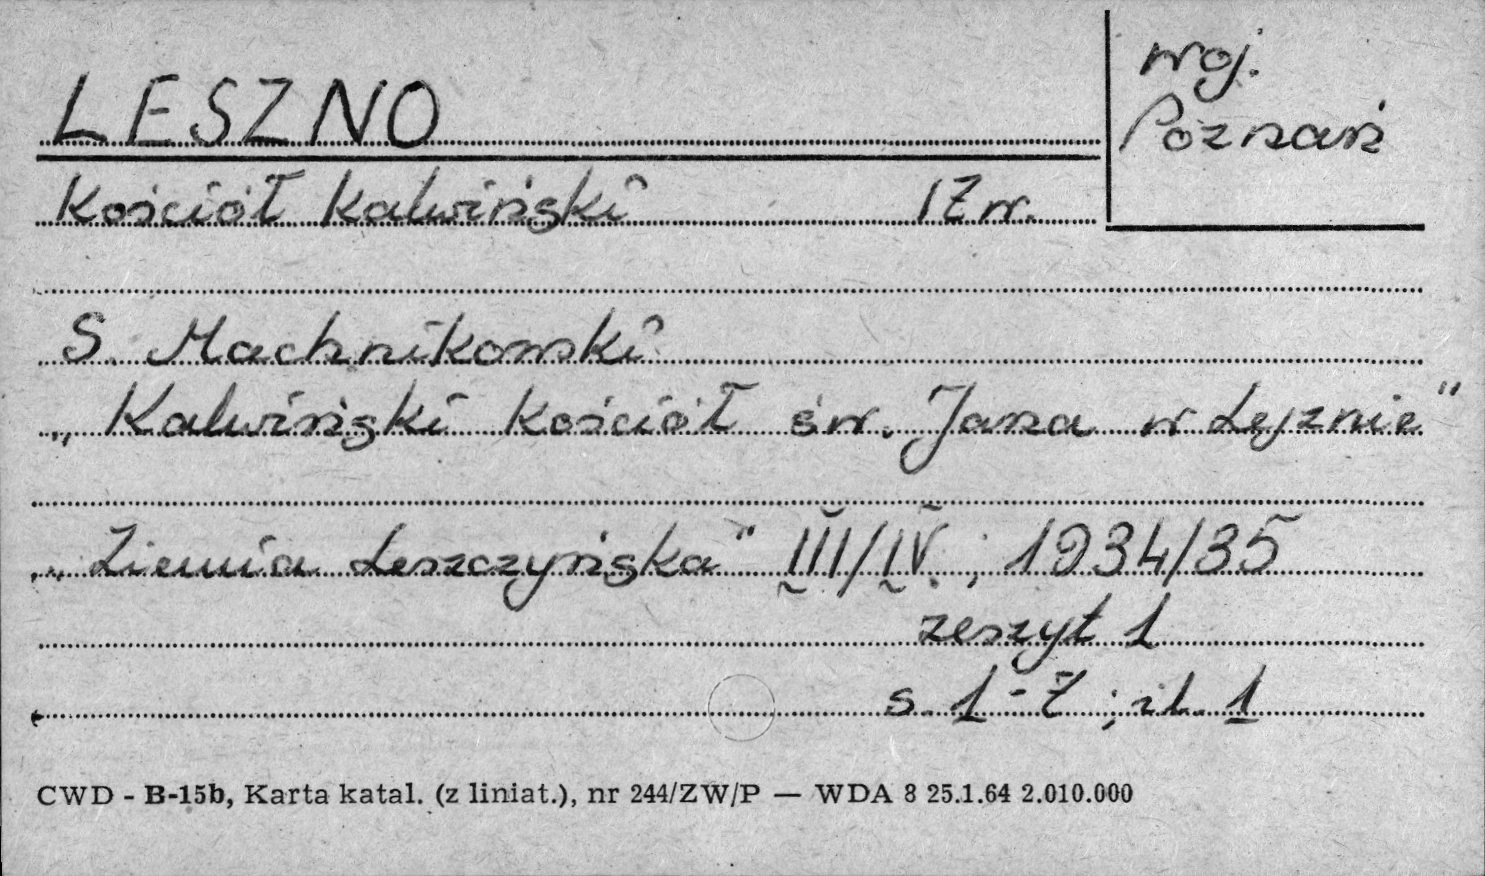 LESZNO
woj.
Poznań
Kościół kalwiński 17 w.
S. Machnikowski
„Kalwiński kościół św. Jana w Lesznie"
„Ziemia Leszczyńska" III/IV. ; 1934/35
zeszyt 1
s. 1-7 ; il. 1
CWD - B-15b, Karta katal. (z liniat.), nr 244/ZW/P — WDA 8 25.1.64 2.010.000